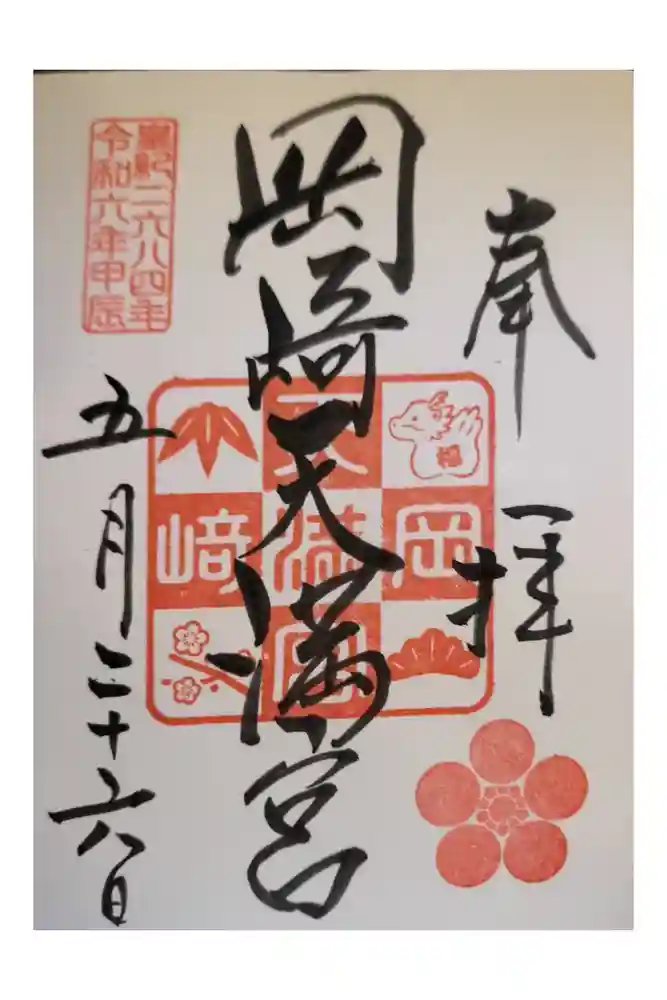 奉拝
岡崎天満宮
岡
天満宮
﨑
福
皇紀二六八四年
令和六年甲辰
五月二十六日